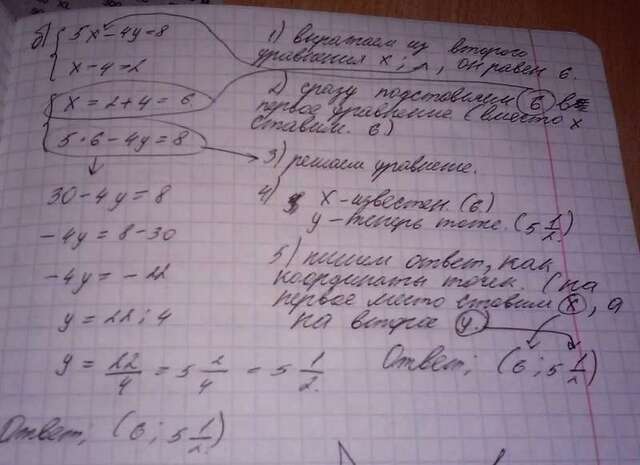 б) { 5x − 4y = 8
x − 4 = 2
{ x = 2 + 4 = 6
5 · 6 − 4y = 8
30 − 4y = 8
−4y = 8 − 30
−4y = −22
y = 22 : 4
y = 22/4 = 5 2/4 = 5 1/2.
Ответ: (6 ; 5 1/2)
1) выражаем из второго
уравнения x ; он равен 6.
2) сразу подставляем (6) в
первое уравнение (вместо x
ставим 6)
3) решаем уравнение.
4) x – известен (6)
y – теперь тоже. (5 1/2)
5) пишем ответ, как
координаты точек. (на
первое место ставим x, а
на второе y.
Ответ: (6 ; 5 1/2)